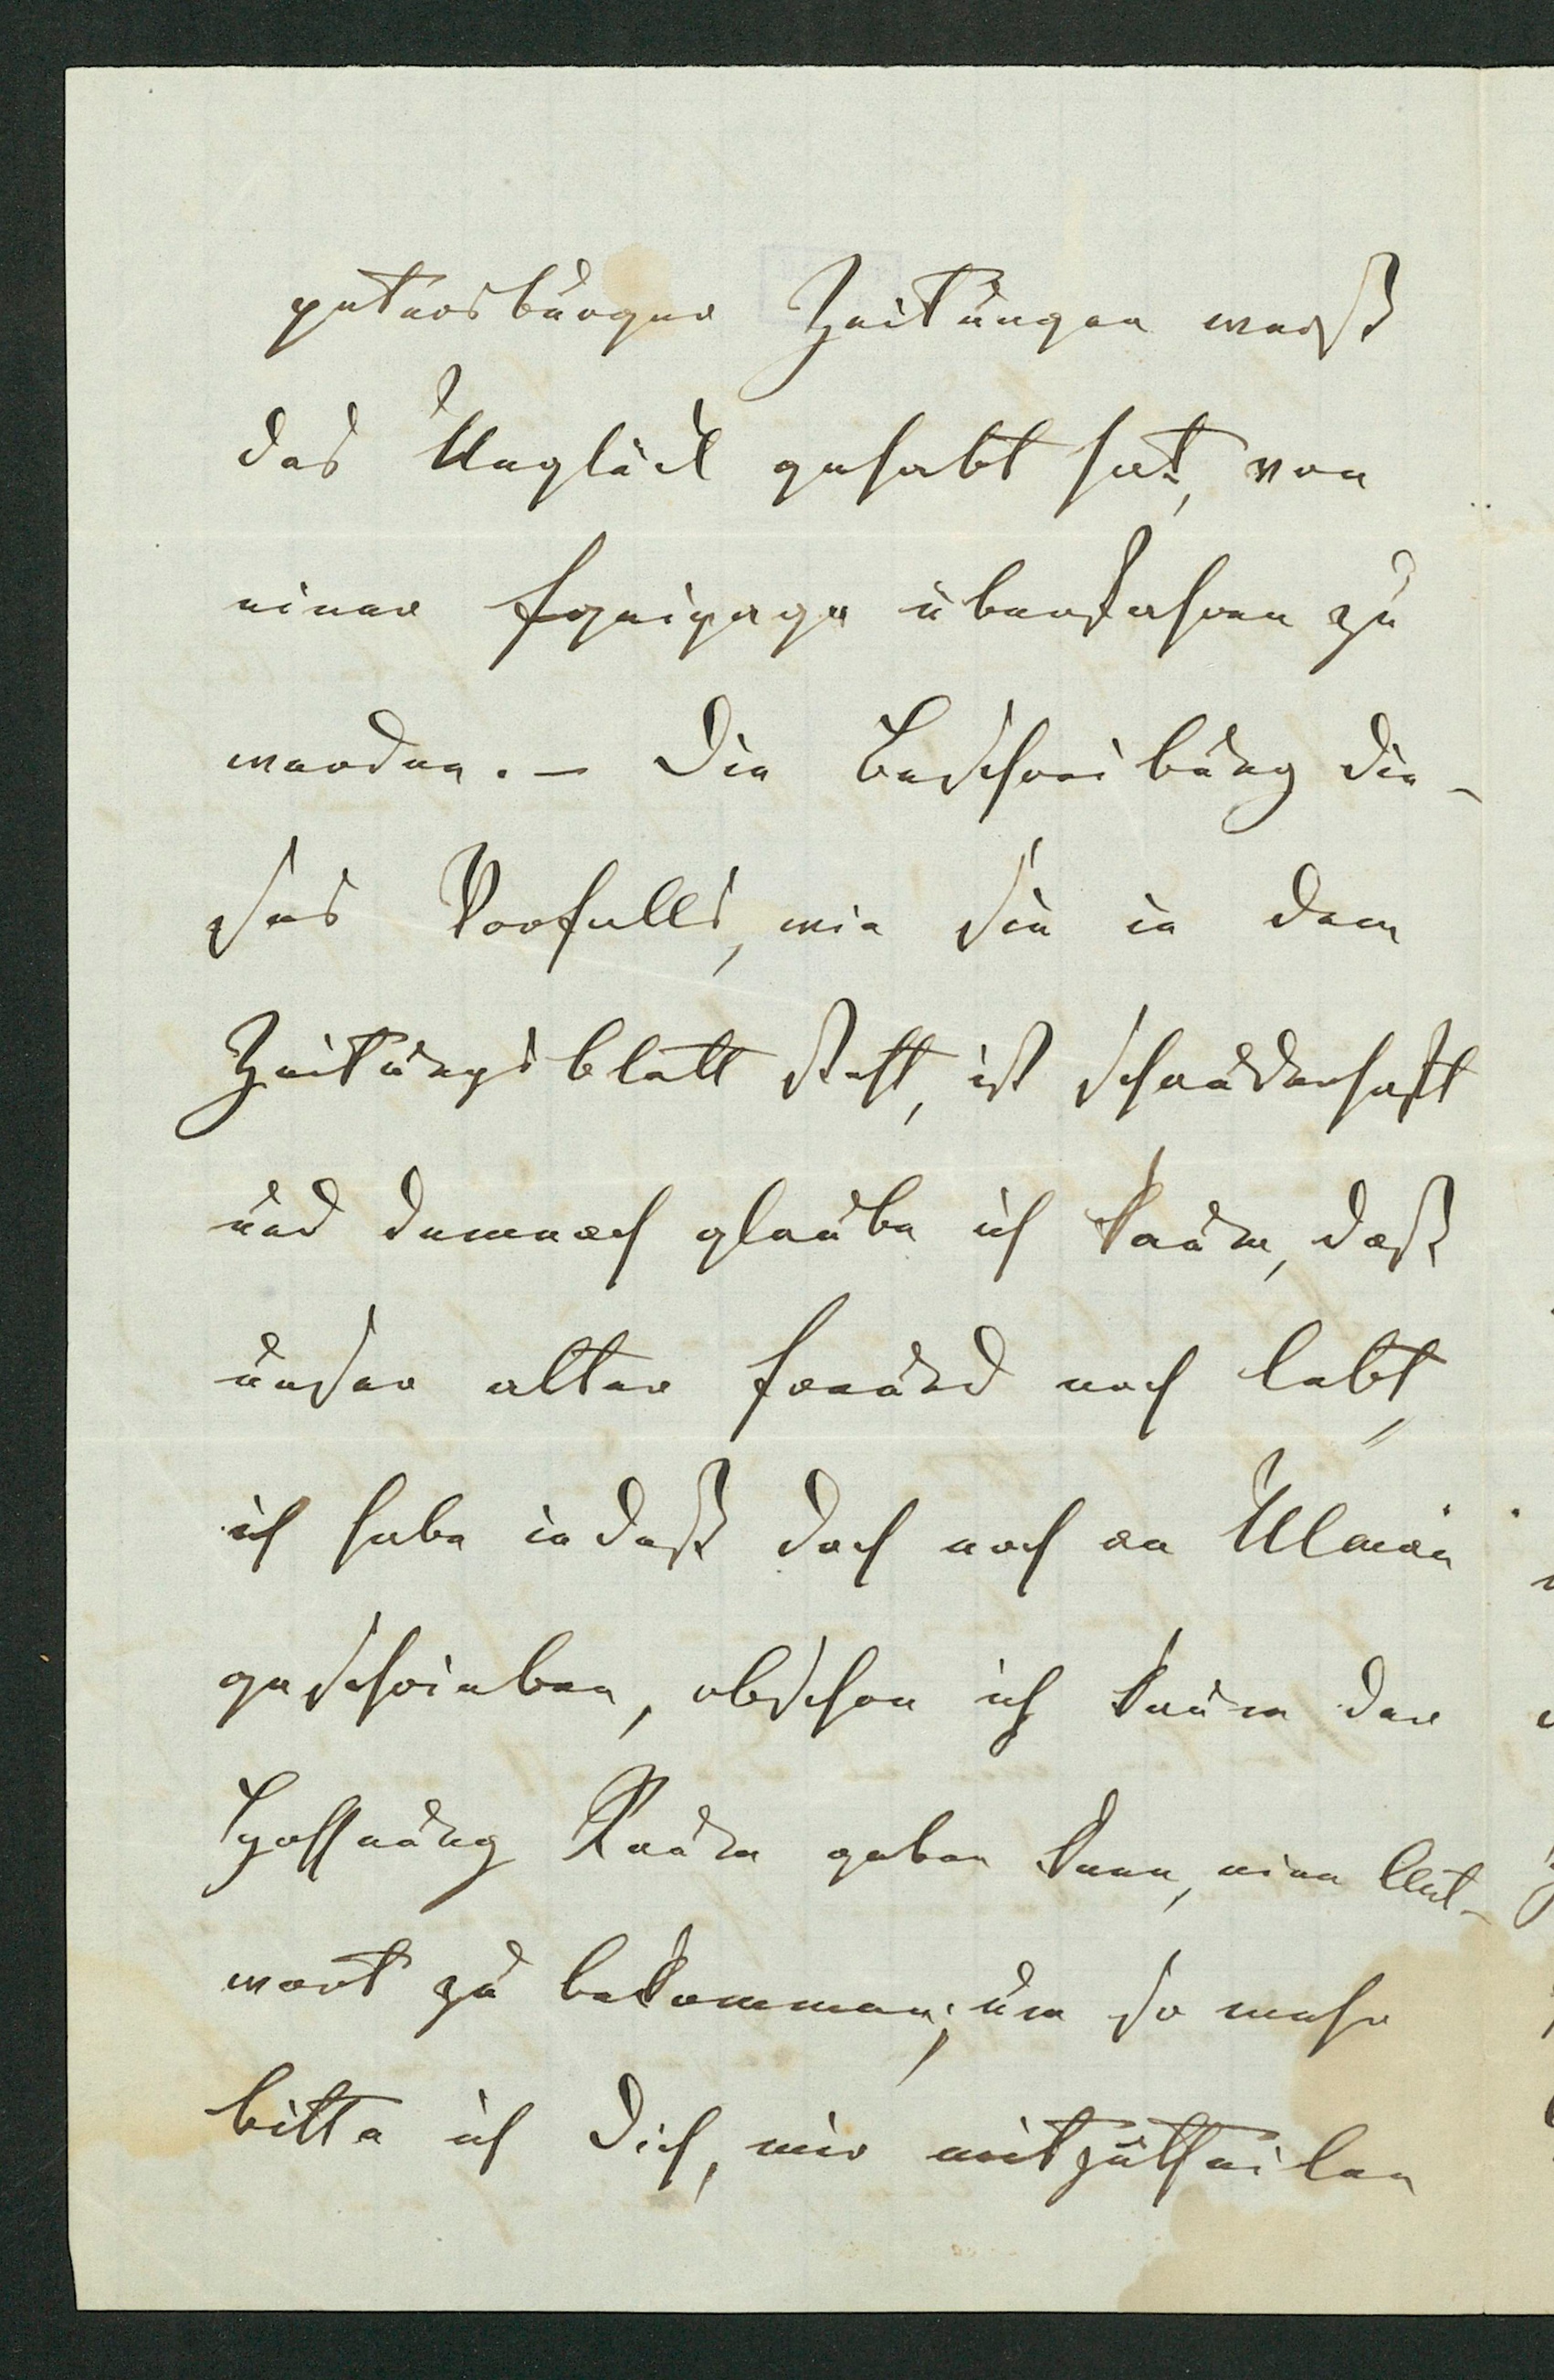 petersburger Zeitungen weiß
das Unglück gehabt hat, von
einer Equipage überfahren zu
werden. — Die Beschreibung die-
ses Vorfalls, wie sie in dem
Zeitungsblatt steht, ist schauderhaft
und demnach glaube ich kaum, daß
unser alter Freund noch lebt,
ich habe indeß doch noch an Ulman
geschrieben, obschon ich kaum der
Hoffnung Raum geben kann, eine Ant-
wort zu bekommen; um so mehr
bitte ich Dich, mir mitzutheilen